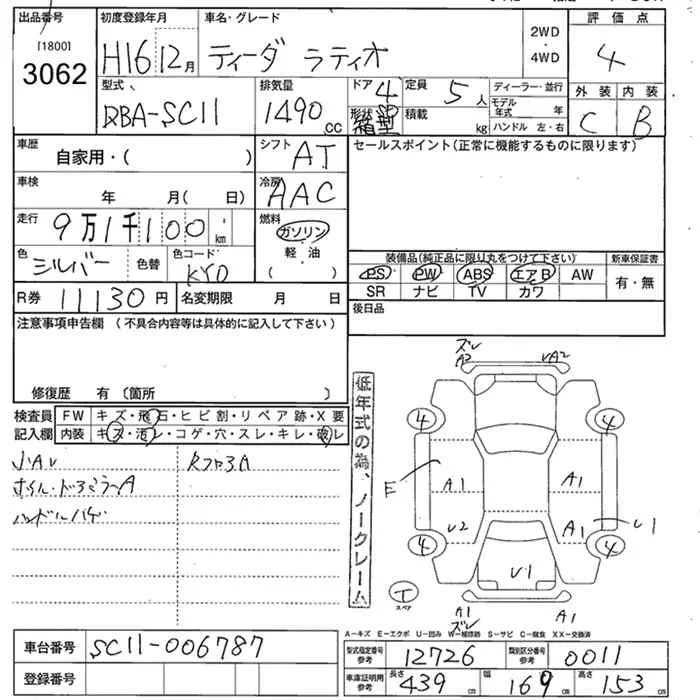 出品番号 初度登録年月 車名・グレード 2WD・4WD 評価点
[1800]
3062 H16 12月 ティーダ ラティオ 4
型式 排気量 ドア 定員 ディーラー・並行 外装 内装
DBA-SC11 1490cc 4 5人 モデル年式 年 C B
形状 箱型 積載 kg ハンドル 左・右
車歴 シフト セールスポイント(正常に機能するものに限ります)
自家用・( ) AT
車検 冷房
年 月( 日) AAC
走行 燃料
9万1千100 km ガソリン
軽・油
( )
色 色コード 装備品(純正品に限り丸をつけて下さい) 新車保証書
シルバー 色替 KY0 PS PW ABS エアB AW 有・無
SR ナビ TV カワ
R券 11130円 名変期限 月 日 後日品
注意事項申告欄 (不具合内容等は具体的に記入して下さい)
修復歴 有 〔箇所 〕
検査員 FW キズ・飛石・ヒビ割・リペア跡・X要
記入欄 内装 キズ・汚レ・コゲ・穴・スレ・キレ・破レ
ハンドルハゲ
低年式の為、ノークレーム
ズレ
A2 UA2
4 4
E A1 A1
U2 A1 U1
4 4
U1
T
スペア
A1 A1
ズレ
A-キズ E-エクボ U-凹み W-補修跡 S-サビ C-腐食 XX-交換済
車台番号 SC11-006787 型式指定番号参考 12726 類別区分番号参考 0011
登録番号 車庫証明用参考 長さ 439 cm 幅 169 cm 高さ 153 cm